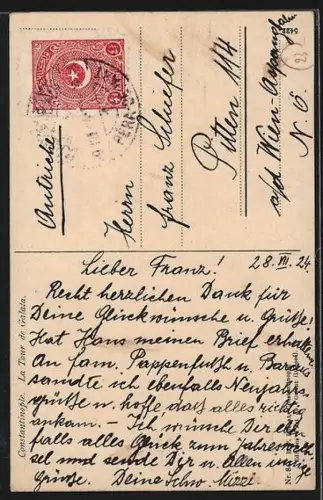 Autriche
Herrn
Franz Schiefer
Pitten 114
a/d Wien-Aspangbahn
N. Ö.
Constantinople. La Tour de Galata.
Lieber Franz! 28. XII. 24.
Recht herzlichen Dank für
Deine Glückwünsche u. Grüße!
Hat Hans meinen Brief erhalten
An fam. Pappenfuth u.
sandte ich ebenfalls Neujahrs
grüße u. hoffe, daß alles richtig
ankam. – Ich wünsche Dir eben
falls alles Glück zum Jahreswech
sel und sende Dir u. allen innige
Grüße. Deine Schw. Mizzi.